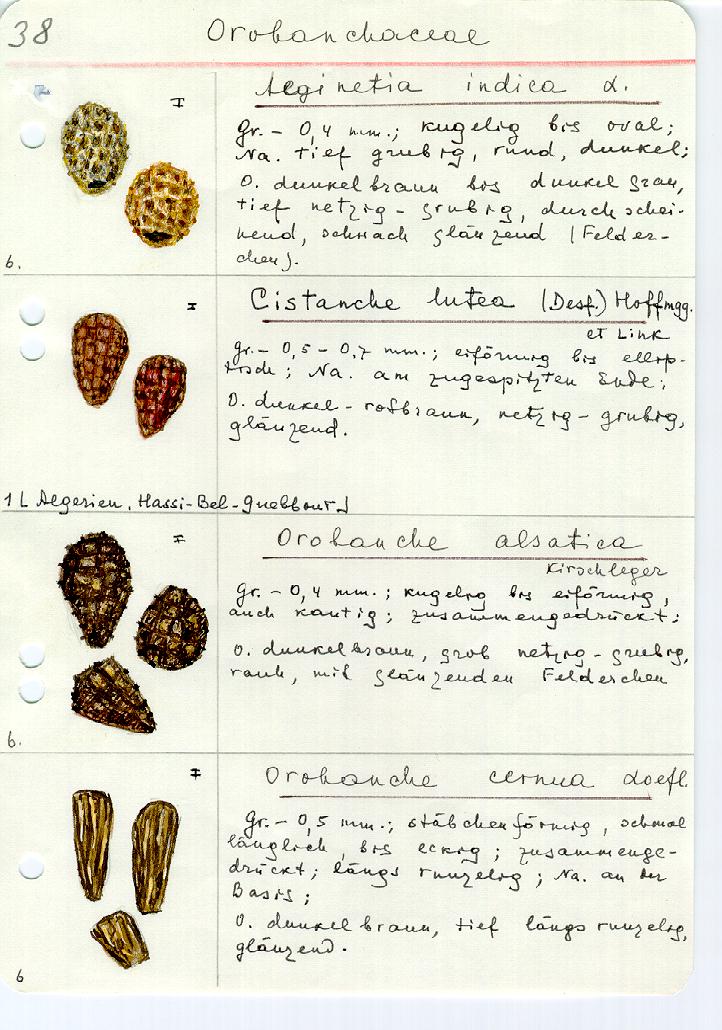 38 Orobanchaceae
Aeginetia indica L.
Gr. - 0,4 mm.; kugelig bis oval;
Na. tief grubig, rund, dunkel;
O. dunkelbraun bis dunkelgrau,
tief netzig - grubig, durchschei-
nend, schwach glänzend (Felder-
chen).
6.
Cistanche lutea (Desf.) Hoffmgg.
et Link
Gr. - 0,5 - 0,7 mm.; eiförmig bis ellip-
tisch; Na. am zugespitzten Ende;
O. dunkel - rotbraun, netzig - grubig,
glänzend.
1 [Algerien, Hassi-Bel-Guebbour]
Orobanche alsatica
Kirschleger
Gr. - 0,4 mm.; kugelig bis eiförmig,
auch kantig; zusammengedrückt;
O. dunkelbraun, grob netzig - grubig,
rauh, mit glänzenden Felderchen
6.
Orobanche cernua Loefl.
Gr. - 0,5 mm.; stäbchenförmig, schmal
länglich, bis eckig; zusammenge-
drückt; längs runzelig; Na. an der
Basis;
O. dunkelbraun, tief längs runzelig,
glänzend.
6